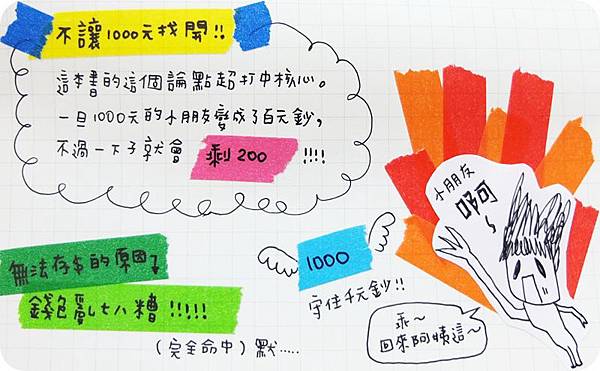 不讓1000元找開!!
這本書的這個論點超打中核心。
一旦1000元的小朋友變成了百元鈔,
不過一下子就會 剩200 !!!!
小朋友
啊~
1000
守住千元鈔!!
無法存$的原因↓
錢包亂七八糟!!!!!
(完全命中)默.....
乖~
回來阿姨這~